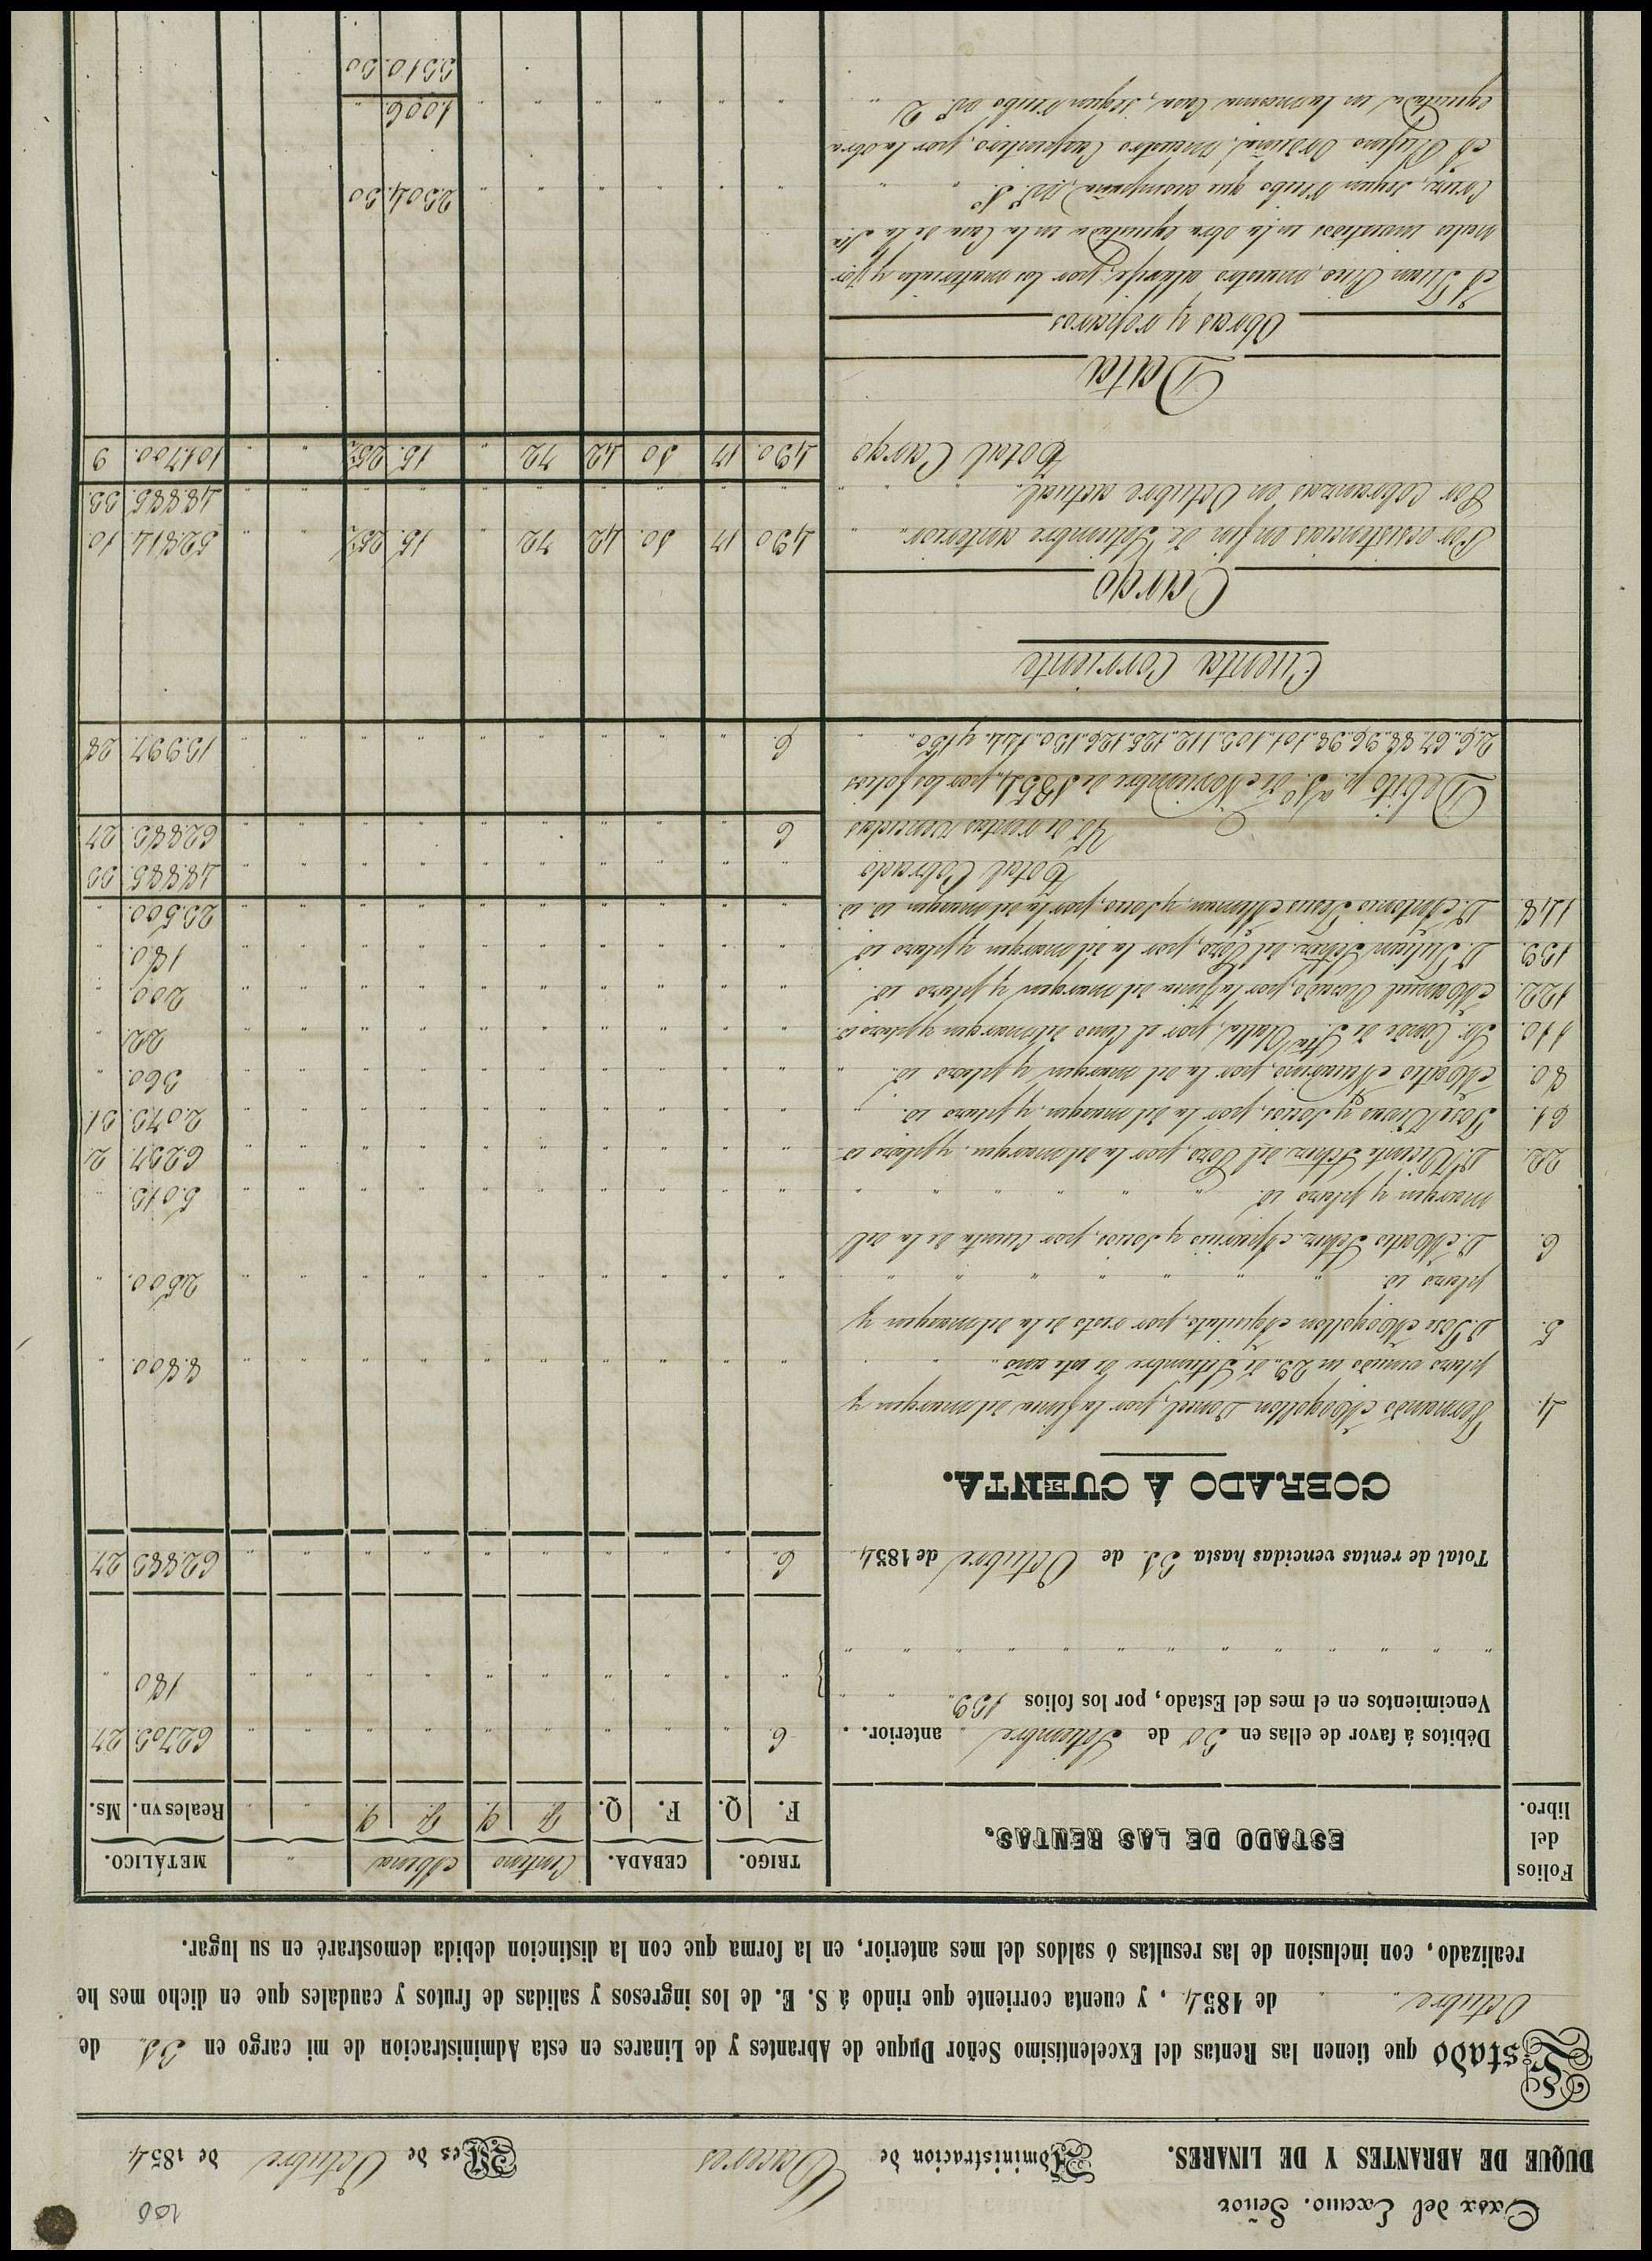 100
Casa del Excmo. Señor
DUQUE DE ABRANTES Y DE LINARES. Administracion de Caceres Mes de Octubre de 1854.
Estado que tienen las Rentas del Excelentísimo Señor Duque de Abrantes y de Linares en esta Administracion de mi cargo en 31. de
Octubre.. de 1854. , y cuenta corriente que rindo á S. E. de los ingresos y salidas de frutos y caudales que en dicho mes he
realizado, con inclusion de las resultas ó saldos del mes anterior, en la forma que con la distincion debida demostraré en su lugar.
Folios del libro. ESTADO DE LAS RENTAS. TRIGO. CEBADA. Centeno Abena " METÁLICO.
F. Q. F. Q. F. q. F. q. " " Reales vn. Ms.
Débitos á favor de ellas en 30 de Setiembre anterior. . 6. " " " " " " " " " 62.705. 27
Vencimientos en el mes del Estado, por los folios 139. " " " " " " " " " " 180 "
Total de rentas vencidas hasta 31. de Octubre de 1854. 6. " " " " " " " " " 62.885 27
COBRADO Á CUENTA.
4. Fernando Mogollon Donel, por la finca del margen y
plazo vencido en 29. de Setiembre de este año.. " " " " " " " " " " 8.800. "
5. D. Jose Mogollon Aguilata, por resto de la del margen y
plazo id. " " " " " " " " " " 2.500. "
6. D. Matis Fehz. Aparicio y Socios, por cuenta de la del
margen y plazo id. " " " " " " " " " " 5.015. "
22. D. Vicente Fehz. del Pozo, por la del margen y plazo id " " " " " " " " " " 6.257. 2
61. Jose Vivas y Socios, por la del margen y plazo id. " " " " " " " " " " 2.075. 31
80. Matis Navarino, por la del margen y plazo id. " " " " " " " " " " 360. "
110. Sr. Conde de Sta. Olalla, por el Censo del margen y plazo id. " " " " " " " " " " 22. "
122. Manuel Rosado, por la finca del margen y plazo id. " " " " " " " " " " 200. "
139. D. Julian Fehz. del Pozo, por la del margen y plazo id " " " " " " " " " " 180. "
148. D. Antonio Jesus Aleman, y Socio, por la del margen id. id. " " " " " " " " " " 23.500. "
Total Cobrado " " " " " " " " " " 48.885. 33
Yd. de rentas vencidas 6 " " " " " " " " " 62.885. 27
Débito p. a 1º. de Noviembre de 1854, por los folios
2,, 6,, 67,, 88,, 96,, 98,, 101,, 103,, 112,, 125,, 126,, 130,, 144,, y 150,, 6. " " " " " " " " " 13.997. 28
Cuenta Corriente
Cargo
Por ecsistencias en fin de Setiembre anterior. 490 17 10. 42 72 " 15. 25½ " " 52.814. 10
Por cobranzas en Octubre actual. " " " " " " " " " " 48.885. 33
Total Cargo 490. 17 10 42 72 " 15. 25½ " " 101.700. 9
Data
Obras y reparos
A Juan Pino, maestro alarife, por los materiales y jor-
nales invertidos en la obra egecutada en la Casa de la Sta.
Cruz, segun recibo que acompaña, nº. 1º. " " " " " " 2504. 30
A Rufino Orduña, maestro Carpintero, por la obra
egecutada en la misma Casa, segun recibo nº. 2 " " " " " " 1.006. "
3510. 30